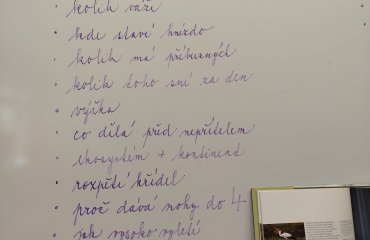 · kolik váží
· kde staví hnízdo
· kolik má příbuzných
· kolik toho sní za den
· výška
· co dělá před nepřítelem
· ekosystém + kontinent
· rozpětí křídel
· proč dává nohy do 4
· jak vysoko vyletí